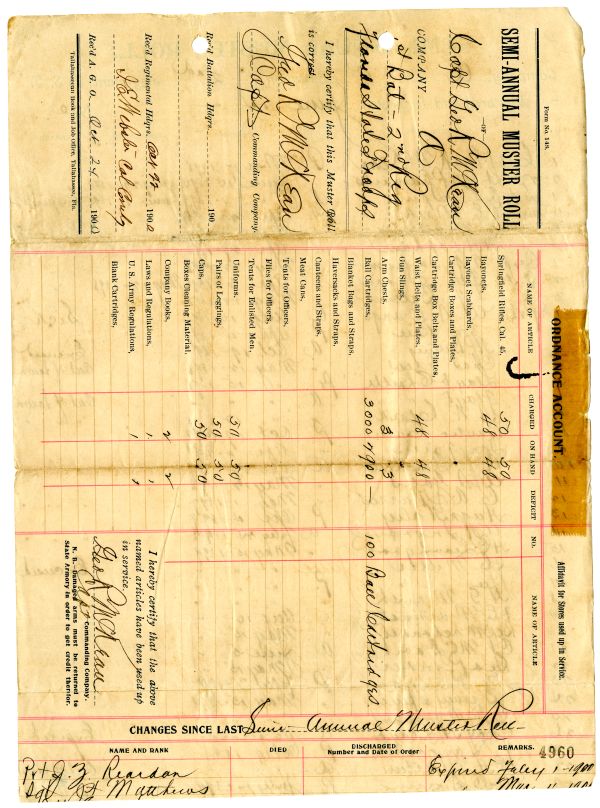 Form No. 148.
SEMI-ANNUAL MUSTER ROLL
—OF—
Capt Geo R McKean
COMPANY A
1st Bat - 2nd Reg
Florida State Troops
I hereby certify that this Muster Roll
is correct.
Geo R McKean
Capt Commanding Company.
Rec'd Battalion Hdqrs. 190
Rec'd Regimental Hdqrs. Oct 1900
Rec'd A. G. O. Oct 24 1900
Tallahasseean Book and Job Office, Tallahassee, Fla.
ORDNANCE ACCOUNT.
NAME OF ARTICLE CHARGED ON HAND DEFICIT
Springfield Rifles, Cal. 45, 50 50
Bayonets, 48 48
Bayonet Scabbards,
Cartridge Boxes and Plates,
Cartridge Box Belts and Plates,
Waist Belts and Plates, 48 48
Gun Slings,
Arm Chests, 3 3
Ball Cartridges, 3000 2900 —
Blanket Bags and Straps,
Haversacks and Straps,
Canteens and Straps,
Meat Cans,
Tents for Officers,
Flies for Officers,
Tents for Enlisted Men,
Uniforms, 50 50
Pairs of Leggings, 50 50
Caps, 50 50
Boxes Cleaning Material,
Company Books, 2 2
Laws and Regulations, 1 1
U. S. Army Regulations, 1 1
Blank Cartridges,
Affidavit for Stores used up in Service.
NO. NAME OF ARTICLE
100 Ball Cartridges
I hereby certify that the above
named articles have been used up
in service.
Geo R McKean
Capt Commanding Company.
N. B.—Damaged arms must be returned to
State Armory in order to get credit therefor.
CHANGES SINCE LAST Semi-Annual Muster Roll
NAME AND RANK DIED DISCHARGED Number and Date of Order REMARKS.
4960
Pvt J. Z. Reardon Expired July 1-1900
Matthews